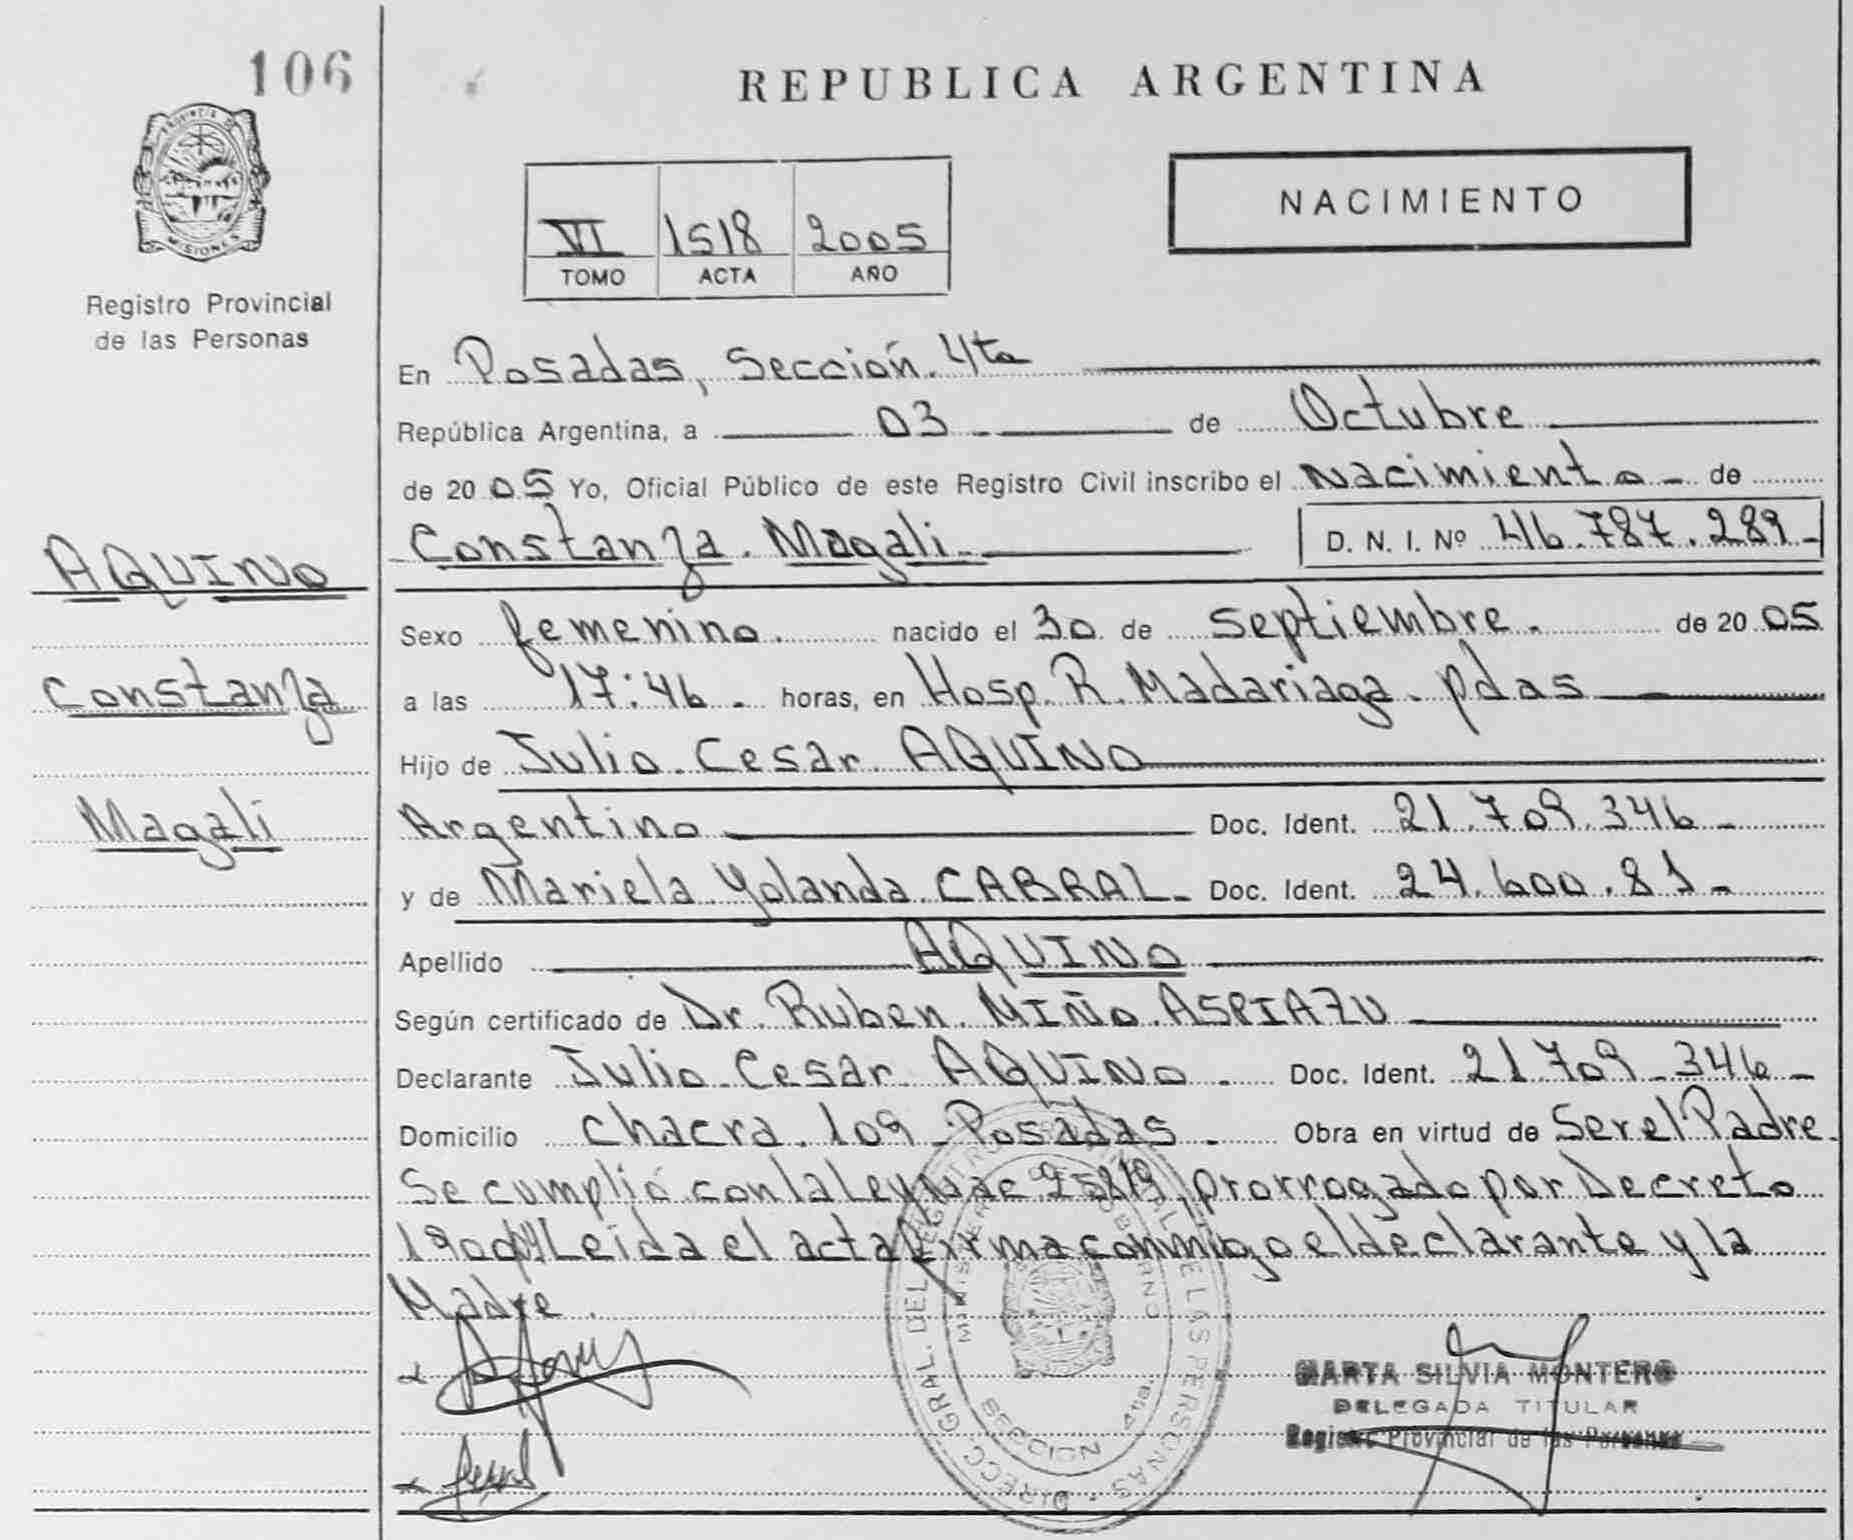 106
REPUBLICA ARGENTINA
PROVINCIA DE MISIONES
Registro Provincial
de las Personas
NACIMIENTO
VI 1518 2005
TOMO ACTA AÑO
En Posadas, Sección 4ta
República Argentina, a 03 de Octubre
de 2005 Yo, Oficial Público de este Registro Civil inscribo el Nacimiento de
Constanza Magali D. N. I. Nº 46.787.289
AQUINO
Constanza
Magali
Sexo femenino. nacido el 30 de Septiembre. de 2005
a las 17:46. horas, en Hosp. R. Madariaga. pdas
Hijo de Julio Cesar AQUINO
Argentino Doc. Ident. 21.709.346
y de Mariela Yolanda CABRAL Doc. Ident. 24.600.81
Apellido AQUINO
Según certificado de Dr. Ruben MIÑO ASPIAZU
Declarante Julio Cesar AQUINO. Doc. Ident. 21.709.346
Domicilio Chacra 109 - Posadas. Obra en virtud de Ser el Padre.
Se cumplió con la ley 25819, prorrogado por Decreto
Leida el acta firma conmigo el declarante y la
Madre.
DIRECC. GRAL. DEL REGISTRO PROVINCIAL DE LAS PERSONAS
MINISTERIO DE GOBIERNO
SECCION 4ta.
MARTA SILVIA MONTERO
DELEGADA TITULAR
Registro Provincial de las Personas